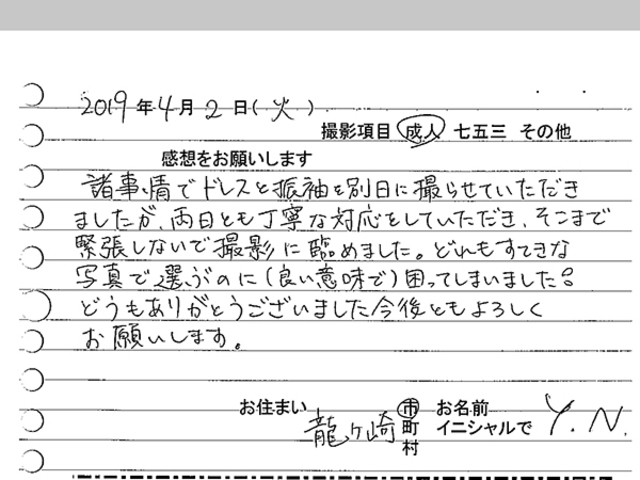 2019年4月2日(火)
撮影項目 成人 七五三 その他
感想をお願いします
諸事情でドレスと振袖を別日に撮らせていただき
ましたが、両日とも丁寧な対応をしていただき、そこまで
緊張しないで撮影に臨めました。どれもすてきな
写真で選ぶのに(良い意味で)困ってしまいました。
どうもありがとうございました今後ともよろしく
お願いします。
お住まい 龍ヶ崎 市町村 お名前イニシャルで Y.N.